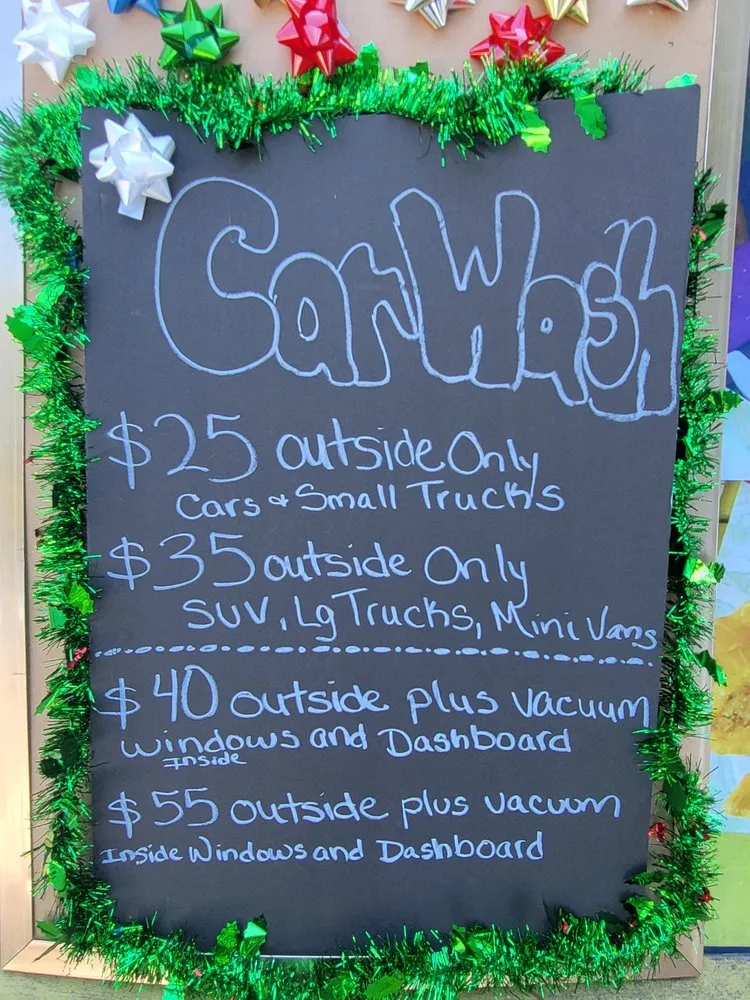 Car Wash
$25 outside Only
Cars & Small Trucks
$35 outside Only
SUV, Lg Trucks, Mini Vans
$40 outside plus vacuum
windows and Dashboard
Inside
$55 outside plus vacuum
Inside Windows and Dashboard